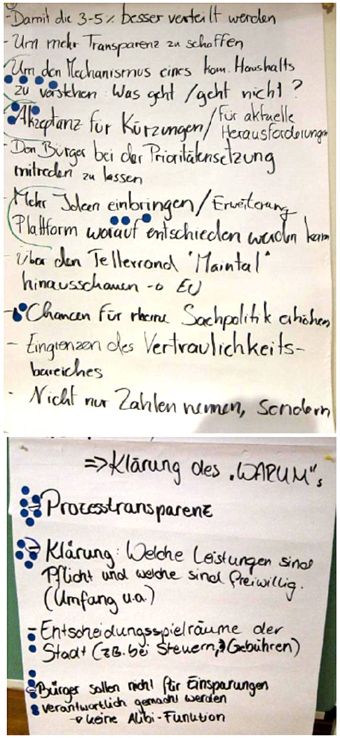 Damit die 3-5% besser verteilt werden
- Um mehr Transparenz zu schaffen
Um den Mechanismus eines kom. Haushalts
zu verstehen: Was geht / geht nicht?
Akzeptanz für Kürzungen / Für aktuelle
Herausforderungen
- Den Bürger bei der Prioritätensetzung
mitreden zu lassen
Mehr Ideen einbringen / Erweiterung
Plattform worauf entschieden werden kann
- über den Tellerrand "Maintal"
hinausschauen → EU
- Chancen für rheine Sachpolitik erhöhen
- Eingrenzen des Vertraulichkeits-
bereiches
- Nicht nur Zahlen nennen, sondern
=> Klärung des "WARUM"s
Prozesstransparenz
Klärung: Welche Leistungen sind
Pflicht und welche sind freiwillig.
(Umfang u.a.)
- Entscheidungsspielräume der
Stadt (z.B. bei Steuern, Gebühren)
Bürger sollen nicht für Einsparungen
verantwortlich gemacht werden
→ keine Alibi-Funktion